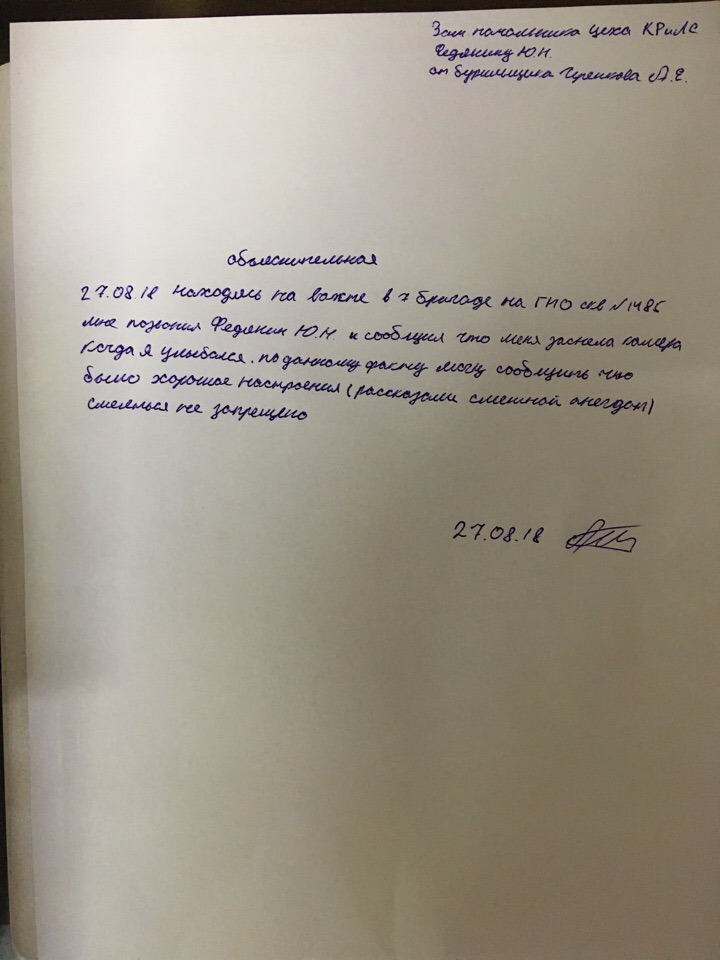 Зам начальника цеха КРиЛС
Федянину Ю.Н.
от бурильщика А.Е.
объяснительная
27.08.18 находясь на вахте в 7 бригаде на ГНО скв №1485
мне позвонил Федянин Ю.Н. и сообщил что меня засняла камера
когда я улыбался. по данному факту могу сообщить что
было хорошое настроения (рассказали смешной анегдот)
смеяться не запрещено
27.08.18